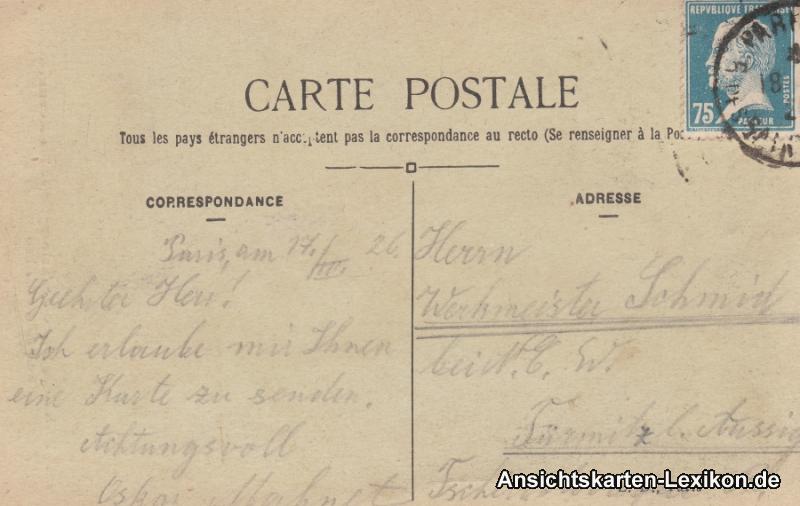 REPVBLIQUE FRANÇAISE
POSTES
75
PARI
18
CARTE POSTALE
Tous les pays étrangers n'acceptent pas la correspondance au recto (Se renseigner à la Pos
CORRESPONDANCE
Paris, am 17./III. 26.
Geehrter Herr!
Ich erlaube mir Ihnen
eine Karte zu senden.
Achtungsvoll
Oskar
ADRESSE
Herrn
Werkmeister Schmid
bei A. E. W.
Türmitz b. Aussig
Ansichtskarten-Lexikon.de